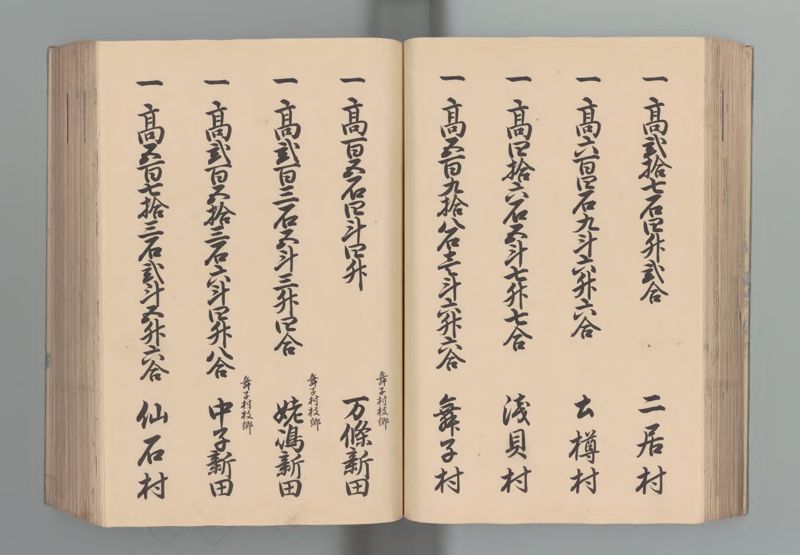 一高弐拾七石四升弐合 二居村
一高六百四石九斗六升六合 土樽村
一高四拾六石五斗七升七合 浅貝村
一高五百九拾八石壱斗六升六合 舞子村
一高百五石四斗四升 舞子村枝郷 万條新田
一高弐百三石五斗三升四合 舞子村枝郷 姥嶋新田
一高弐百五拾三石六斗四升八合 舞子村枝郷 中子新田
一高五百七拾三石弐斗五升六合 仙石村